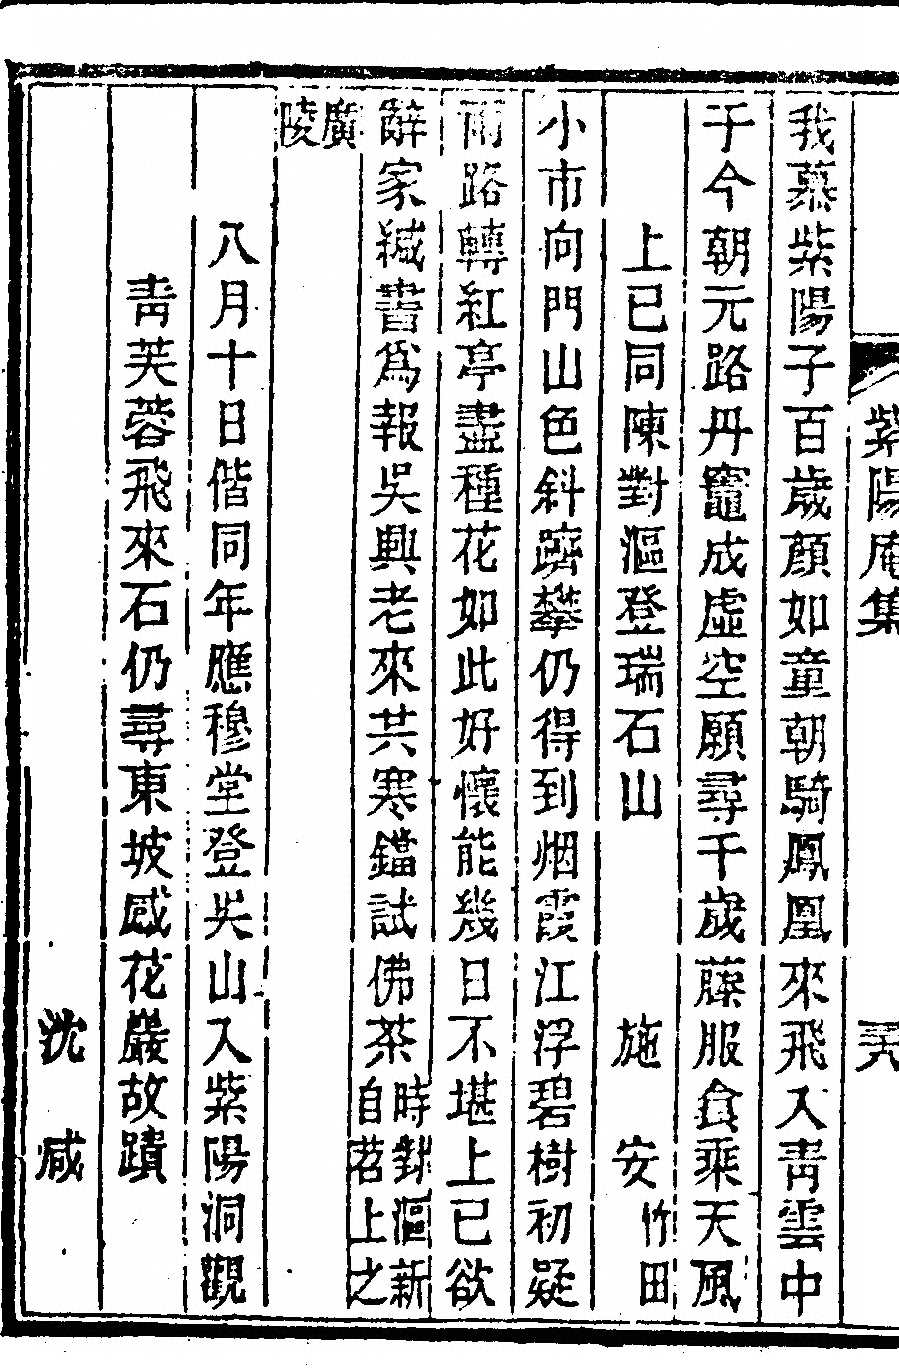 紫陽庵集
我慕紫陽子百歲顏如童朝騎鳳凰來飛入青雲中
于今朝元路丹竈成虛空願尋千歲藤服食乘天風
上巳同陳對漚登瑞石山　施安竹田
小市向門山色斜躋攀仍得到烟霞江浮碧樹初疑
雨路轉紅亭盡種花如此好懷能幾日不堪上巳欲
辭家緘書爲報吳興老來共寒鐺試佛茶時對漚新自苕上之
廣陵
八月十日偕同年應穆堂登吳山入紫陽洞觀
青芙蓉飛來石仍尋東坡感花巖故蹟
沈咸